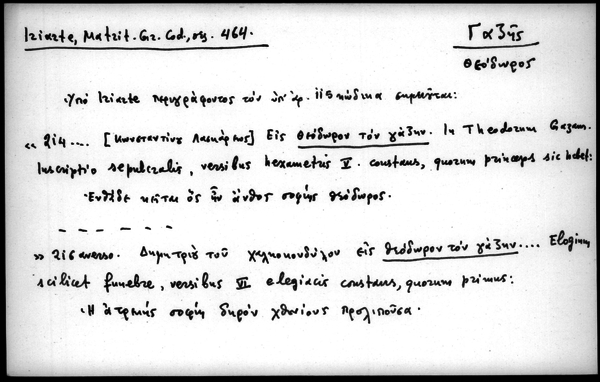 Iriarte, Matrit. Gr. Cod., σσ. 464.
Γαζῆς
Θεόδωρος
Ὑπό Iriarte περιγράφοντος τόν ὑπ' ἀρ. 115 κώδικα σημειοῦται:
« 214.... [Κωνσταντίνου Λασκάρεως] Εἰς Θεόδωρον τόν γάζην. In Theodorum Gazam.
Inscriptio sepulcralis, versibus hexametris V. constans, quorum princeps sic habet:
Ἐνθάδε κεῖται ὅς ἦν ἄνθος σοφίης Θεόδωρος.
» 216 averso. Δημητρίου τοῦ χαλκοκονδύλου εἰς θεόδωρον τόν γάζην.... Elogium
scilicet funebre, versibus VI elegiacis constans, quorum primus:
Ἡ ἀτρεκής σοφίη δηρόν χθονίους προλιποῦσα.